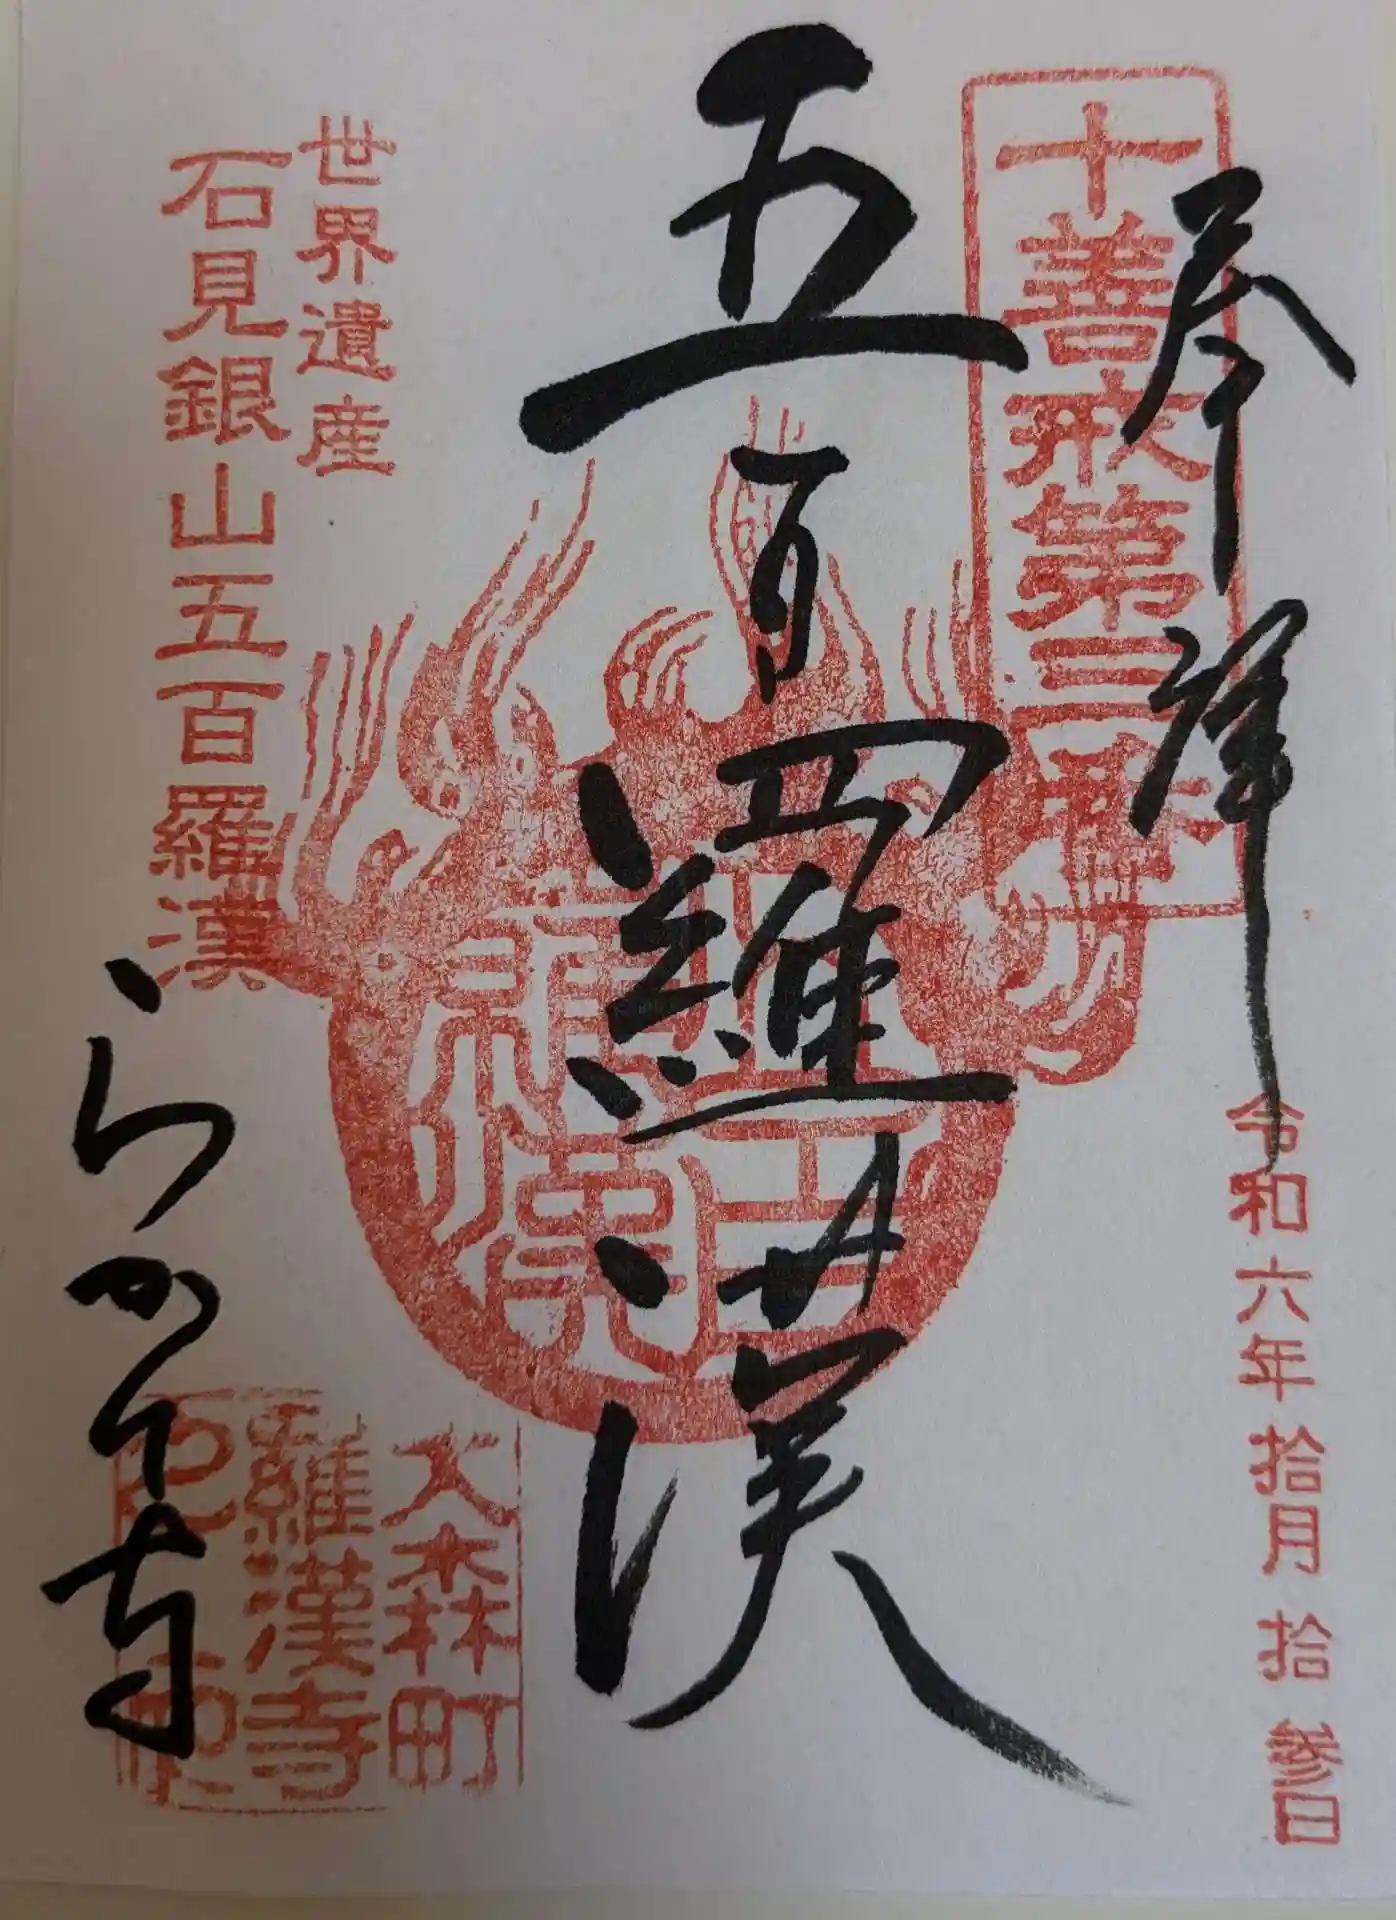 奉拝
十善戒第三番
令和六年拾月拾参日
五百羅漢
世界遺産
石見銀山五百羅漢
五百
羅漢
らかん寺
大森町
羅漢寺